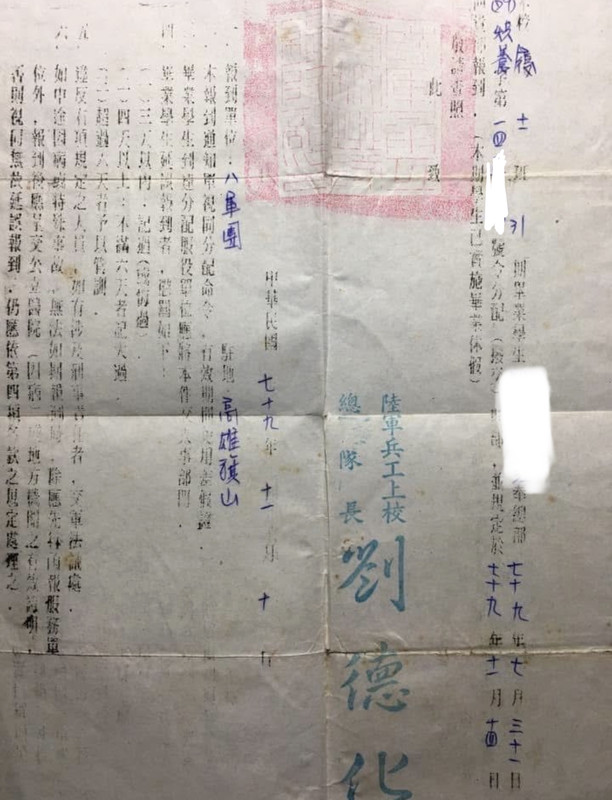 士 班 31 期畢業學生 總部 七十九年七月三十一日
第一四 號令分配 並規定於七十九年十一月十四日
前 報到。（本期學生已實施畢業休假）
敬請查照
此 致
陸軍兵工上校
總隊長 劉德化
中華民國 七十九年 十一月 十日
報到單位：八軍團 駐地：高雄旗山
本報到通知單視同分配命令，有效期間
畢業學生到達分配服役單位應將本件交人事部門。
四 畢業學生延誤報到者，懲罰如下：
（一）三天以內，記過
（二）四天以上，不滿六天者記大過。
（三）超過六天者予以管訓。
五 違反右項規定之人員，如有涉及刑事責任者，交軍法議處。
六 如中途因病或特殊事故，無法如期報到時，除應先行函報服務單
位外，報到後應呈交公立醫院（因病） 地方機關之有效證明，
否則視同無故延誤報到，仍應依第四項各款之規定處理之。